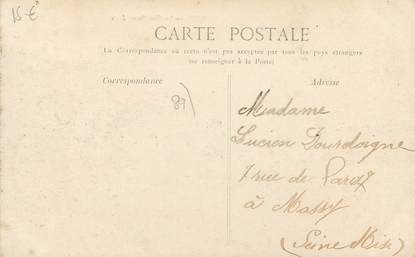 15 €
CARTE POSTALE
La Correspondance au recto n'est pas acceptée par tous les pays étrangers
(se renseigner à la Poste)
Correspondance
Adresse
89)
Madame
Lucien Dourdoigne
7 rue de Paris
à Massy
(Seine